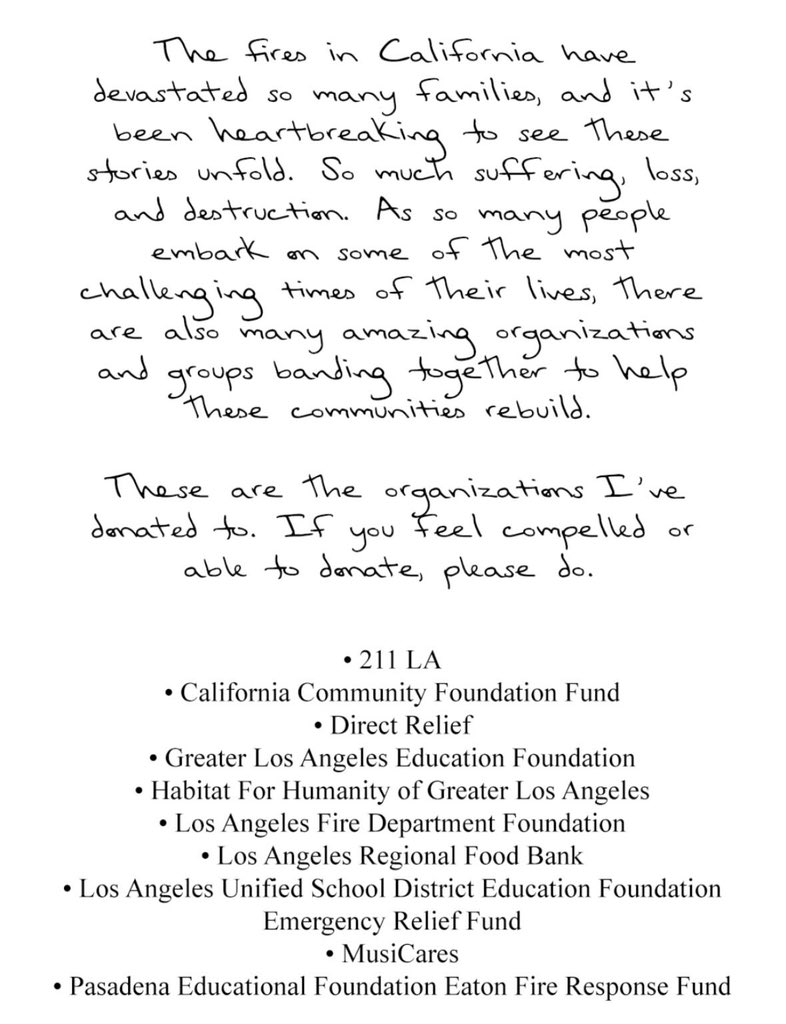 The fires in California have
devastated so many families, and it's
been heartbreaking to see these
stories unfold. So much suffering, loss,
and destruction. As so many people
embark on some of the most
challenging times of their lives, there
are also many amazing organizations
and groups banding together to help
these communities rebuild.
These are the organizations I've
donated to. If you feel compelled or
able to donate, please do.
• 211 LA
• California Community Foundation Fund
• Direct Relief
• Greater Los Angeles Education Foundation
• Habitat For Humanity of Greater Los Angeles
• Los Angeles Fire Department Foundation
• Los Angeles Regional Food Bank
• Los Angeles Unified School District Education Foundation
Emergency Relief Fund
• MusiCares
• Pasadena Educational Foundation Eaton Fire Response Fund